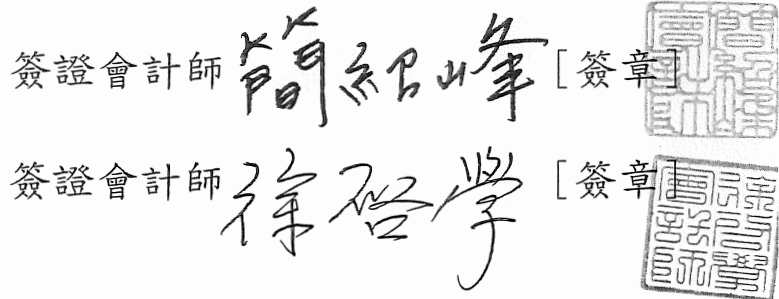 簽證會計師 簡紹峰 [簽章]
簽證會計師 徐啓學 [簽章]